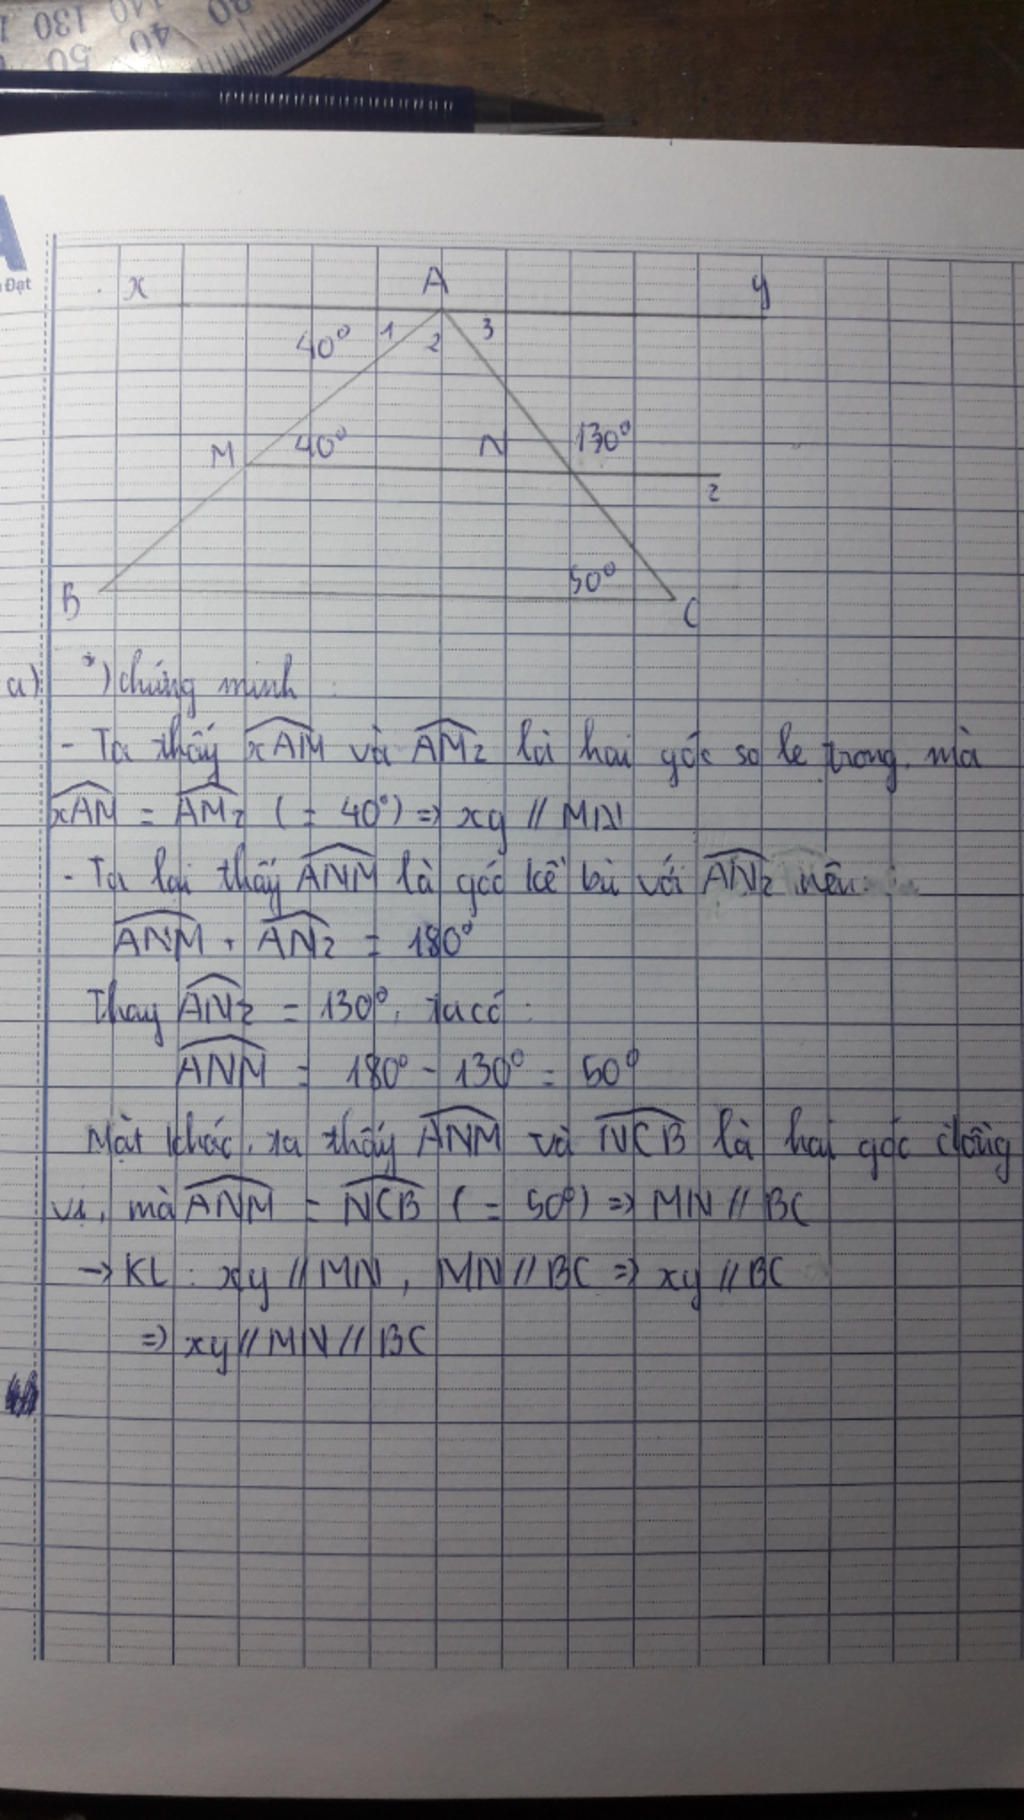 130
140
50
40
30
A
Đạt
x A y
40° 1 2 3
M 40° N 130°
z
B 50° C
a) *) chứng minh :
- Ta thấy xAM và AMz là hai góc so le trong, mà
xAM = AMz ( = 40°) => xy // MN
- Ta lại thấy ANM là góc kề bù với ANz nên
ANM + ANz = 180°
Thay ANz = 130°, ta có :
ANM = 180° - 130° = 50°
Mặt khác, ta thấy ANM và NCB là hai góc đồng
vị, mà ANM = NCB ( = 50°) => MN // BC
-> KL : xy // MN , MN // BC => xy // BC
=> xy // MN // BC